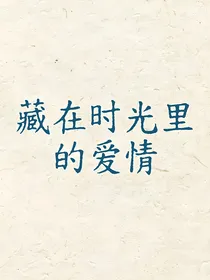 藏在时光里
的爱情